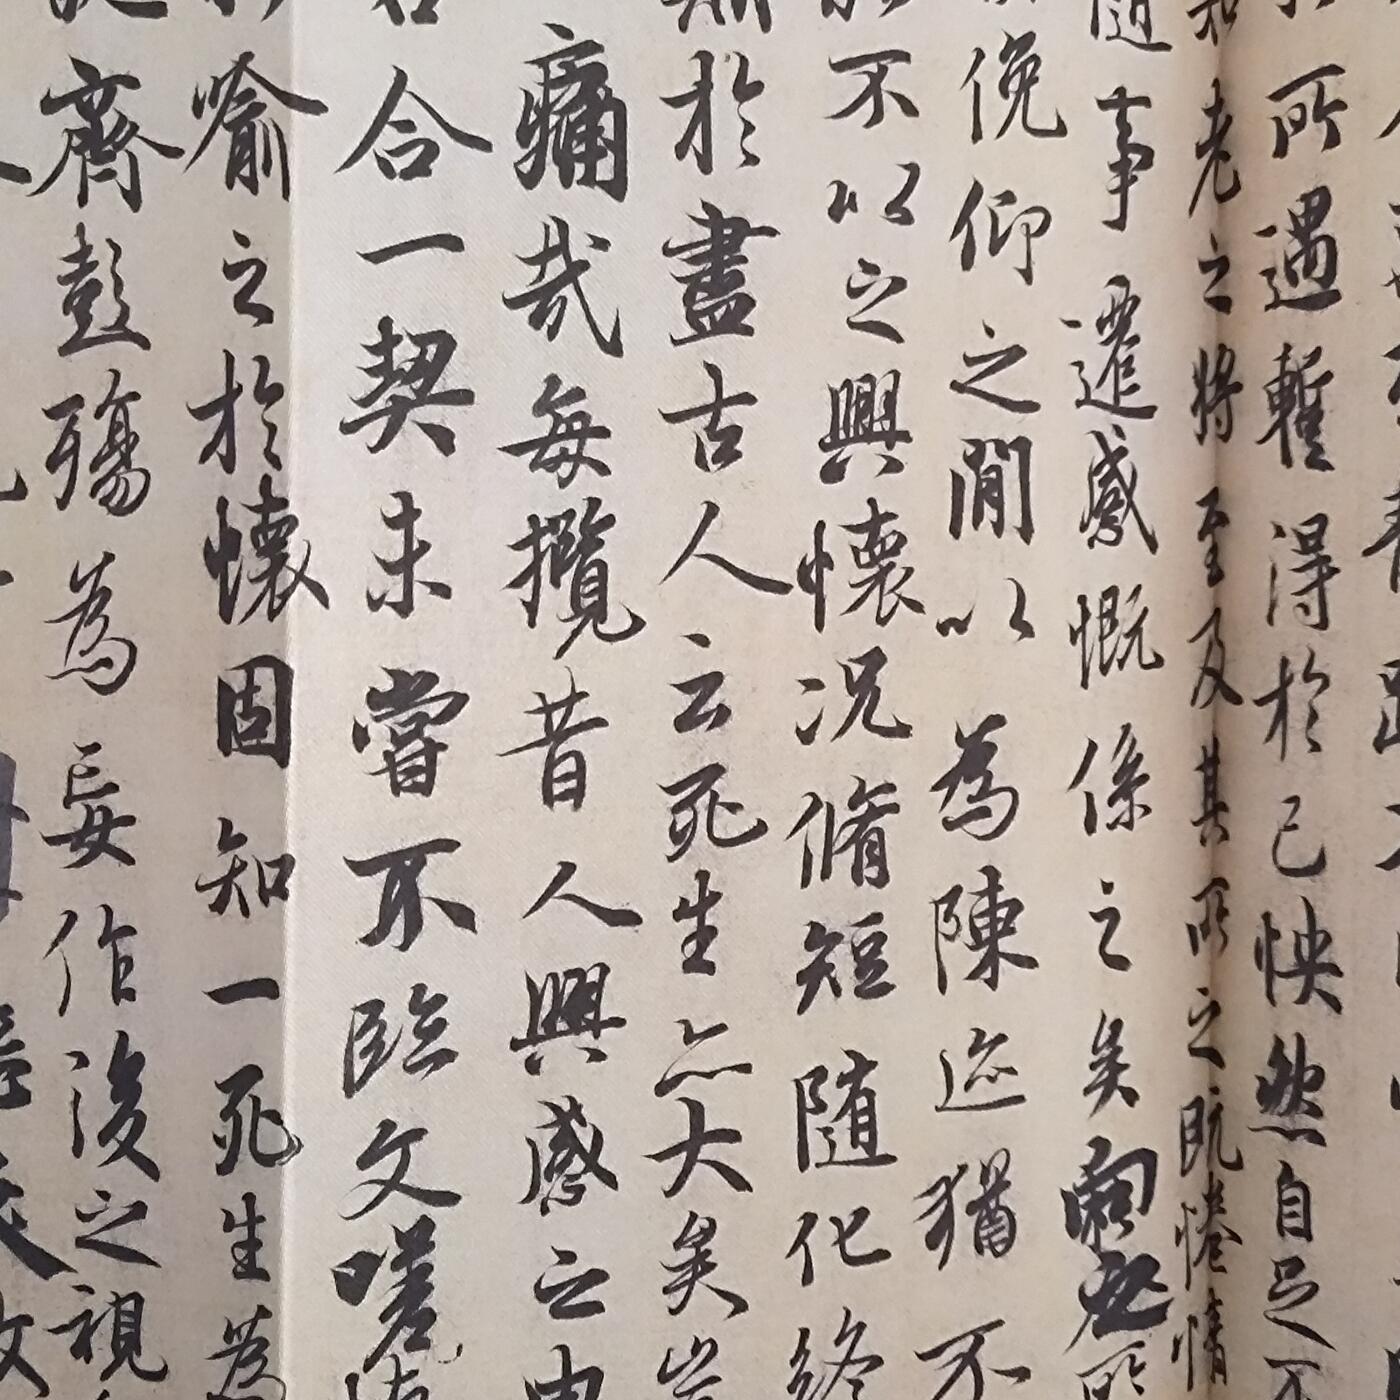 所遇蹔得於己怏然自足不
知老之将至及其所之既惓情
隨事遷感慨係之矣向之所
俛仰之閒以為陳迹猶不
不以之興懷况脩短隨化終
於盡古人云死生亦大矣豈
痛哉每攬昔人興感之由
合一契未嘗不臨文嗟
喻之於懷固知一死生為
齊彭殤為妄作後之視